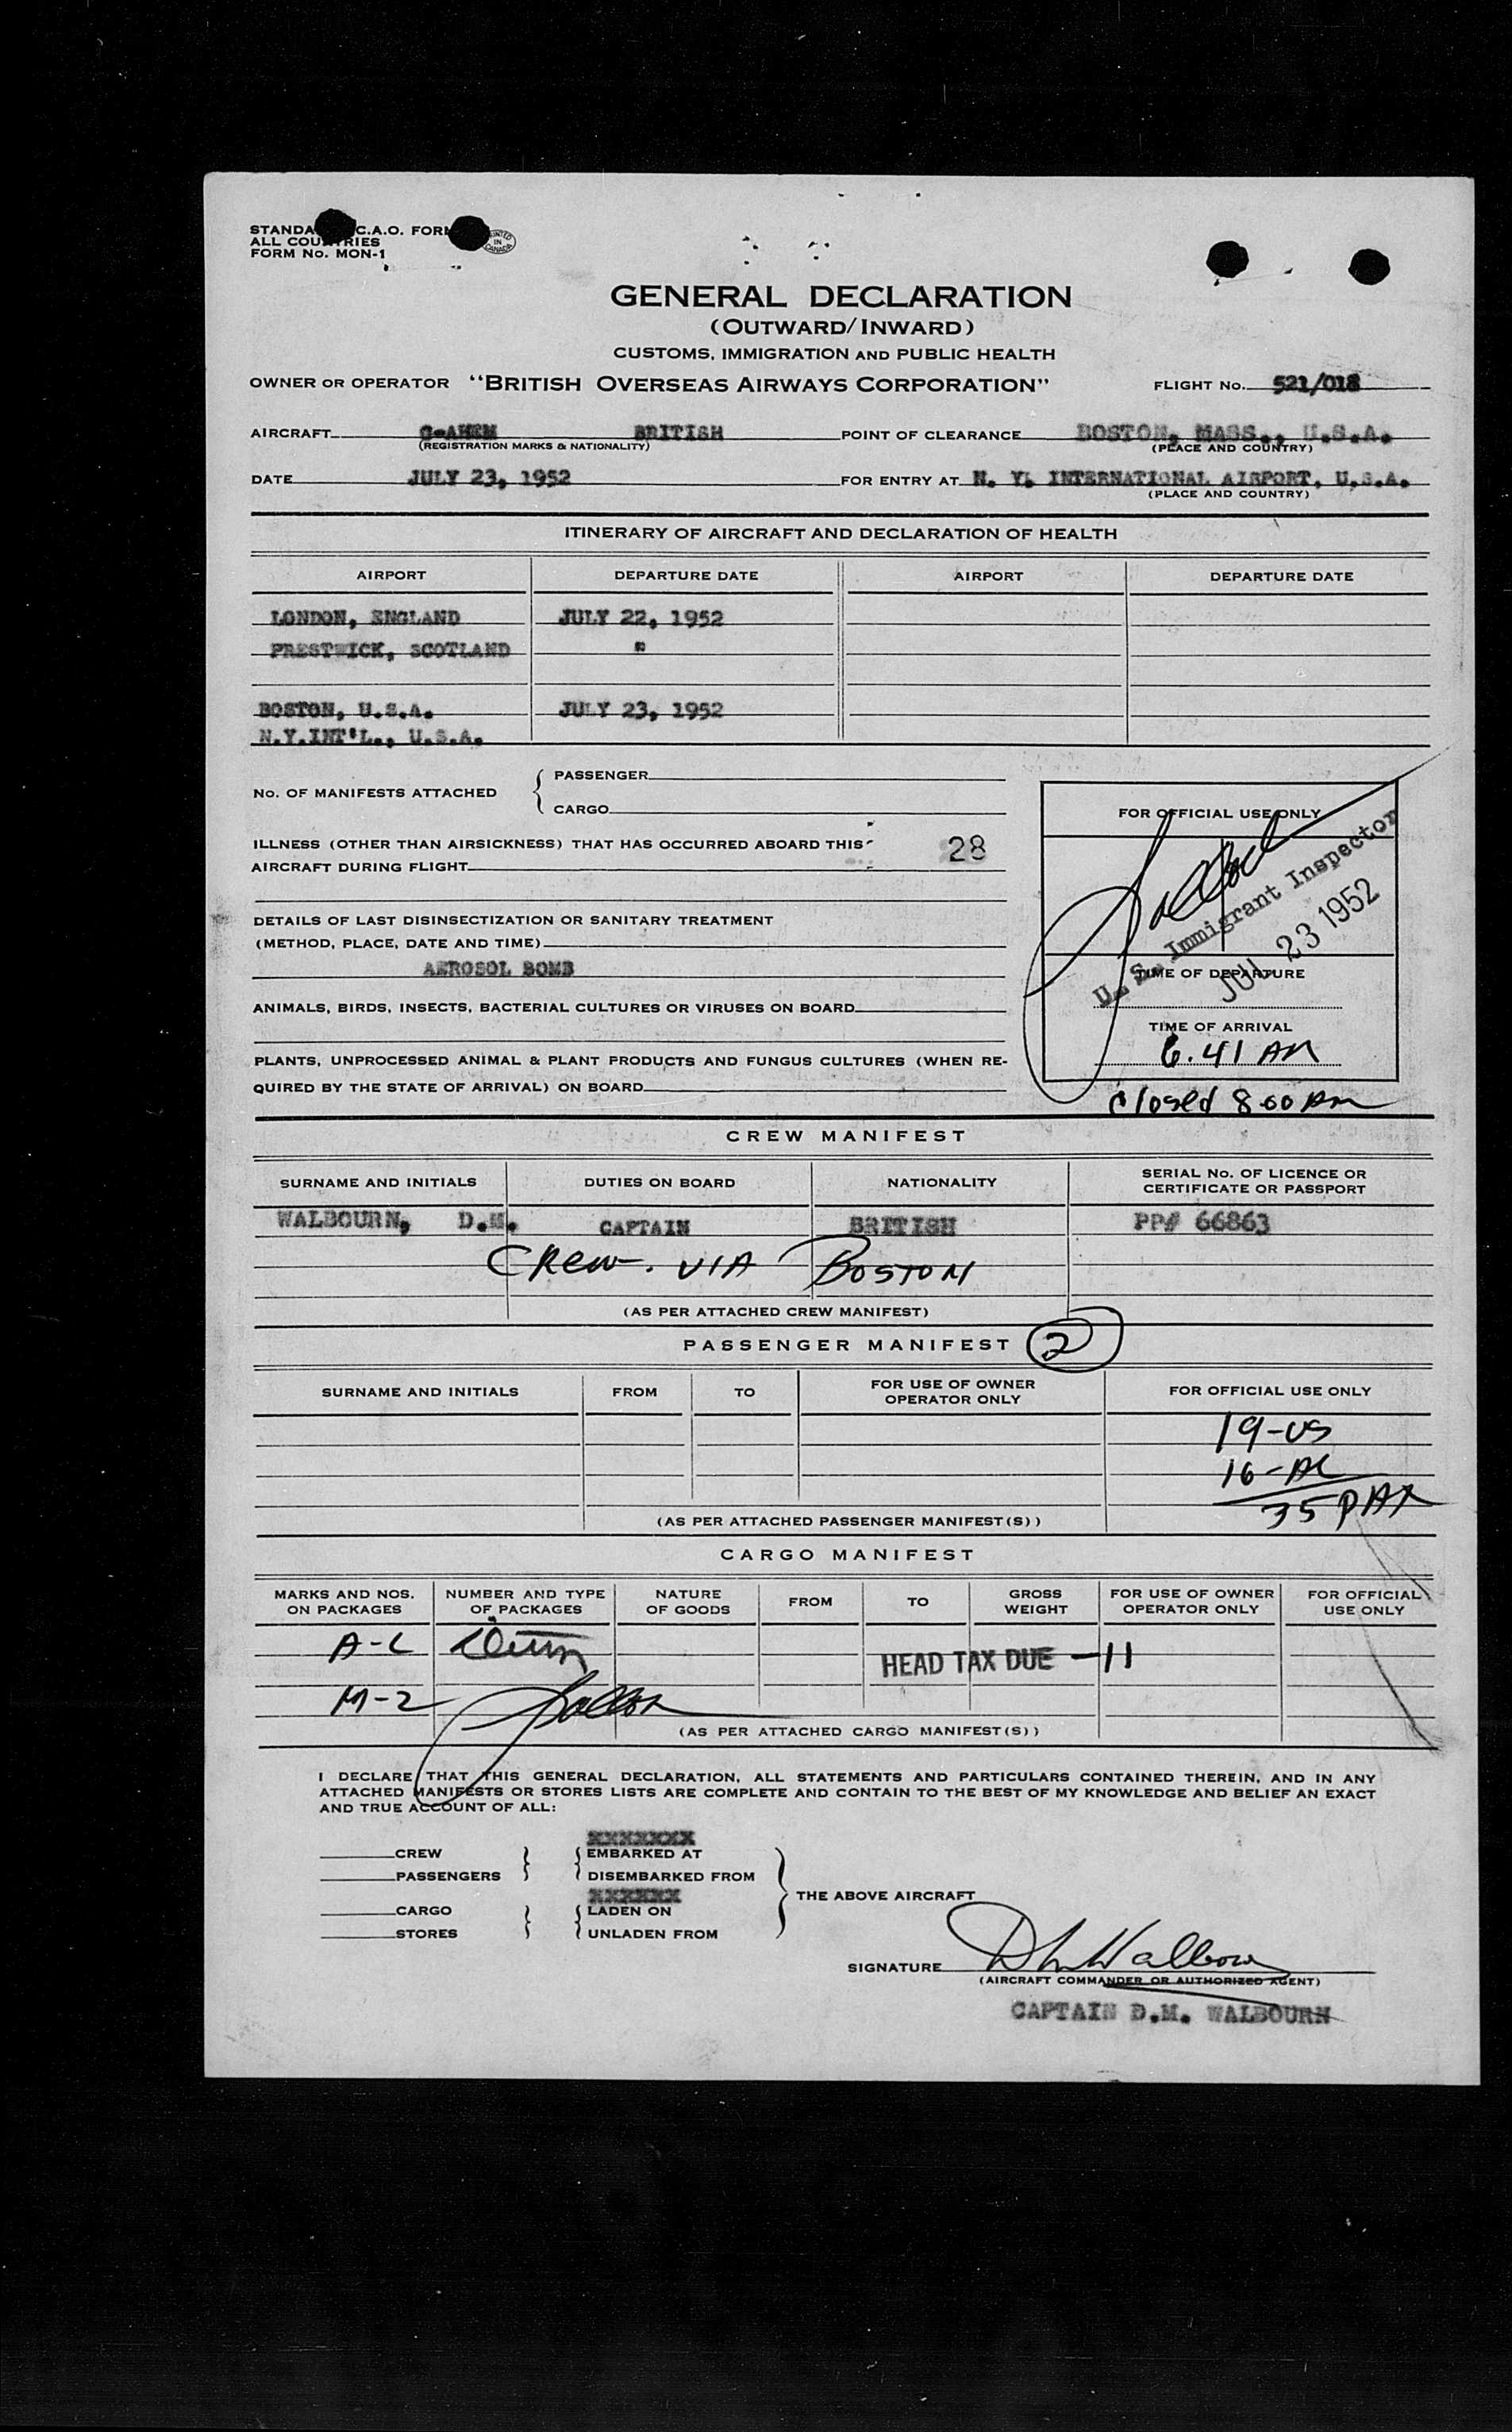 STANDA C.A.O. FORM
ALL COUNTRIES
FORM No. MON-1
PRINTED IN CANADA
GENERAL DECLARATION
(OUTWARD/INWARD)
CUSTOMS, IMMIGRATION AND PUBLIC HEALTH
OWNER OR OPERATOR "BRITISH OVERSEAS AIRWAYS CORPORATION" FLIGHT No. 521/018
AIRCRAFT G-AHEM BRITISH POINT OF CLEARANCE BOSTON, MASS., U.S.A.
(REGISTRATION MARKS & NATIONALITY) (PLACE AND COUNTRY)
DATE JULY 23, 1952 FOR ENTRY AT N. Y. INTERNATIONAL AIRPORT, U.S.A.
(PLACE AND COUNTRY)
ITINERARY OF AIRCRAFT AND DECLARATION OF HEALTH
AIRPORT DEPARTURE DATE AIRPORT DEPARTURE DATE
LONDON, ENGLAND JULY 22, 1952
PRESTWICK, SCOTLAND "
BOSTON, U.S.A. JULY 23, 1952
N.Y.INT'L., U.S.A.
No. OF MANIFESTS ATTACHED { PASSENGER
CARGO
FOR OFFICIAL USE ONLY
ILLNESS (OTHER THAN AIRSICKNESS) THAT HAS OCCURRED ABOARD THIS 28
AIRCRAFT DURING FLIGHT
U. S. Immigrant Inspector
JUL 23 1952
DETAILS OF LAST DISINSECTIZATION OR SANITARY TREATMENT
(METHOD, PLACE, DATE AND TIME)
AEROSOL BOMB
TIME OF DEPARTURE
ANIMALS, BIRDS, INSECTS, BACTERIAL CULTURES OR VIRUSES ON BOARD
TIME OF ARRIVAL
6.41 AM
PLANTS, UNPROCESSED ANIMAL & PLANT PRODUCTS AND FUNGUS CULTURES (WHEN RE-
QUIRED BY THE STATE OF ARRIVAL) ON BOARD
closed 8.00 Am
CREW MANIFEST
SURNAME AND INITIALS DUTIES ON BOARD NATIONALITY SERIAL No. OF LICENCE OR
CERTIFICATE OR PASSPORT
WALBOURN, D.M. CAPTAIN BRITISH PP# 66863
CREW. VIA BOSTON
(AS PER ATTACHED CREW MANIFEST)
PASSENGER MANIFEST 2
SURNAME AND INITIALS FROM TO FOR USE OF OWNER
OPERATOR ONLY FOR OFFICIAL USE ONLY
19-US
16-AL
35 PAX
(AS PER ATTACHED PASSENGER MANIFEST(S))
CARGO MANIFEST
MARKS AND NOS. NUMBER AND TYPE NATURE FROM TO GROSS FOR USE OF OWNER FOR OFFICIAL
ON PACKAGES OF PACKAGES OF GOODS WEIGHT OPERATOR ONLY USE ONLY
A-L
HEAD TAX DUE -11
M-2
(AS PER ATTACHED CARGO MANIFEST(S))
I DECLARE THAT THIS GENERAL DECLARATION, ALL STATEMENTS AND PARTICULARS CONTAINED THEREIN, AND IN ANY
ATTACHED MANIFESTS OR STORES LISTS ARE COMPLETE AND CONTAIN TO THE BEST OF MY KNOWLEDGE AND BELIEF AN EXACT
AND TRUE ACCOUNT OF ALL:
XXXXXXX
CREW EMBARKED AT
PASSENGERS DISEMBARKED FROM
XXXXXX THE ABOVE AIRCRAFT
CARGO LADEN ON
STORES UNLADEN FROM
SIGNATURE D M Walbourn
(AIRCRAFT COMMANDER OR AUTHORIZED AGENT)
CAPTAIN D.M. WALBOURN